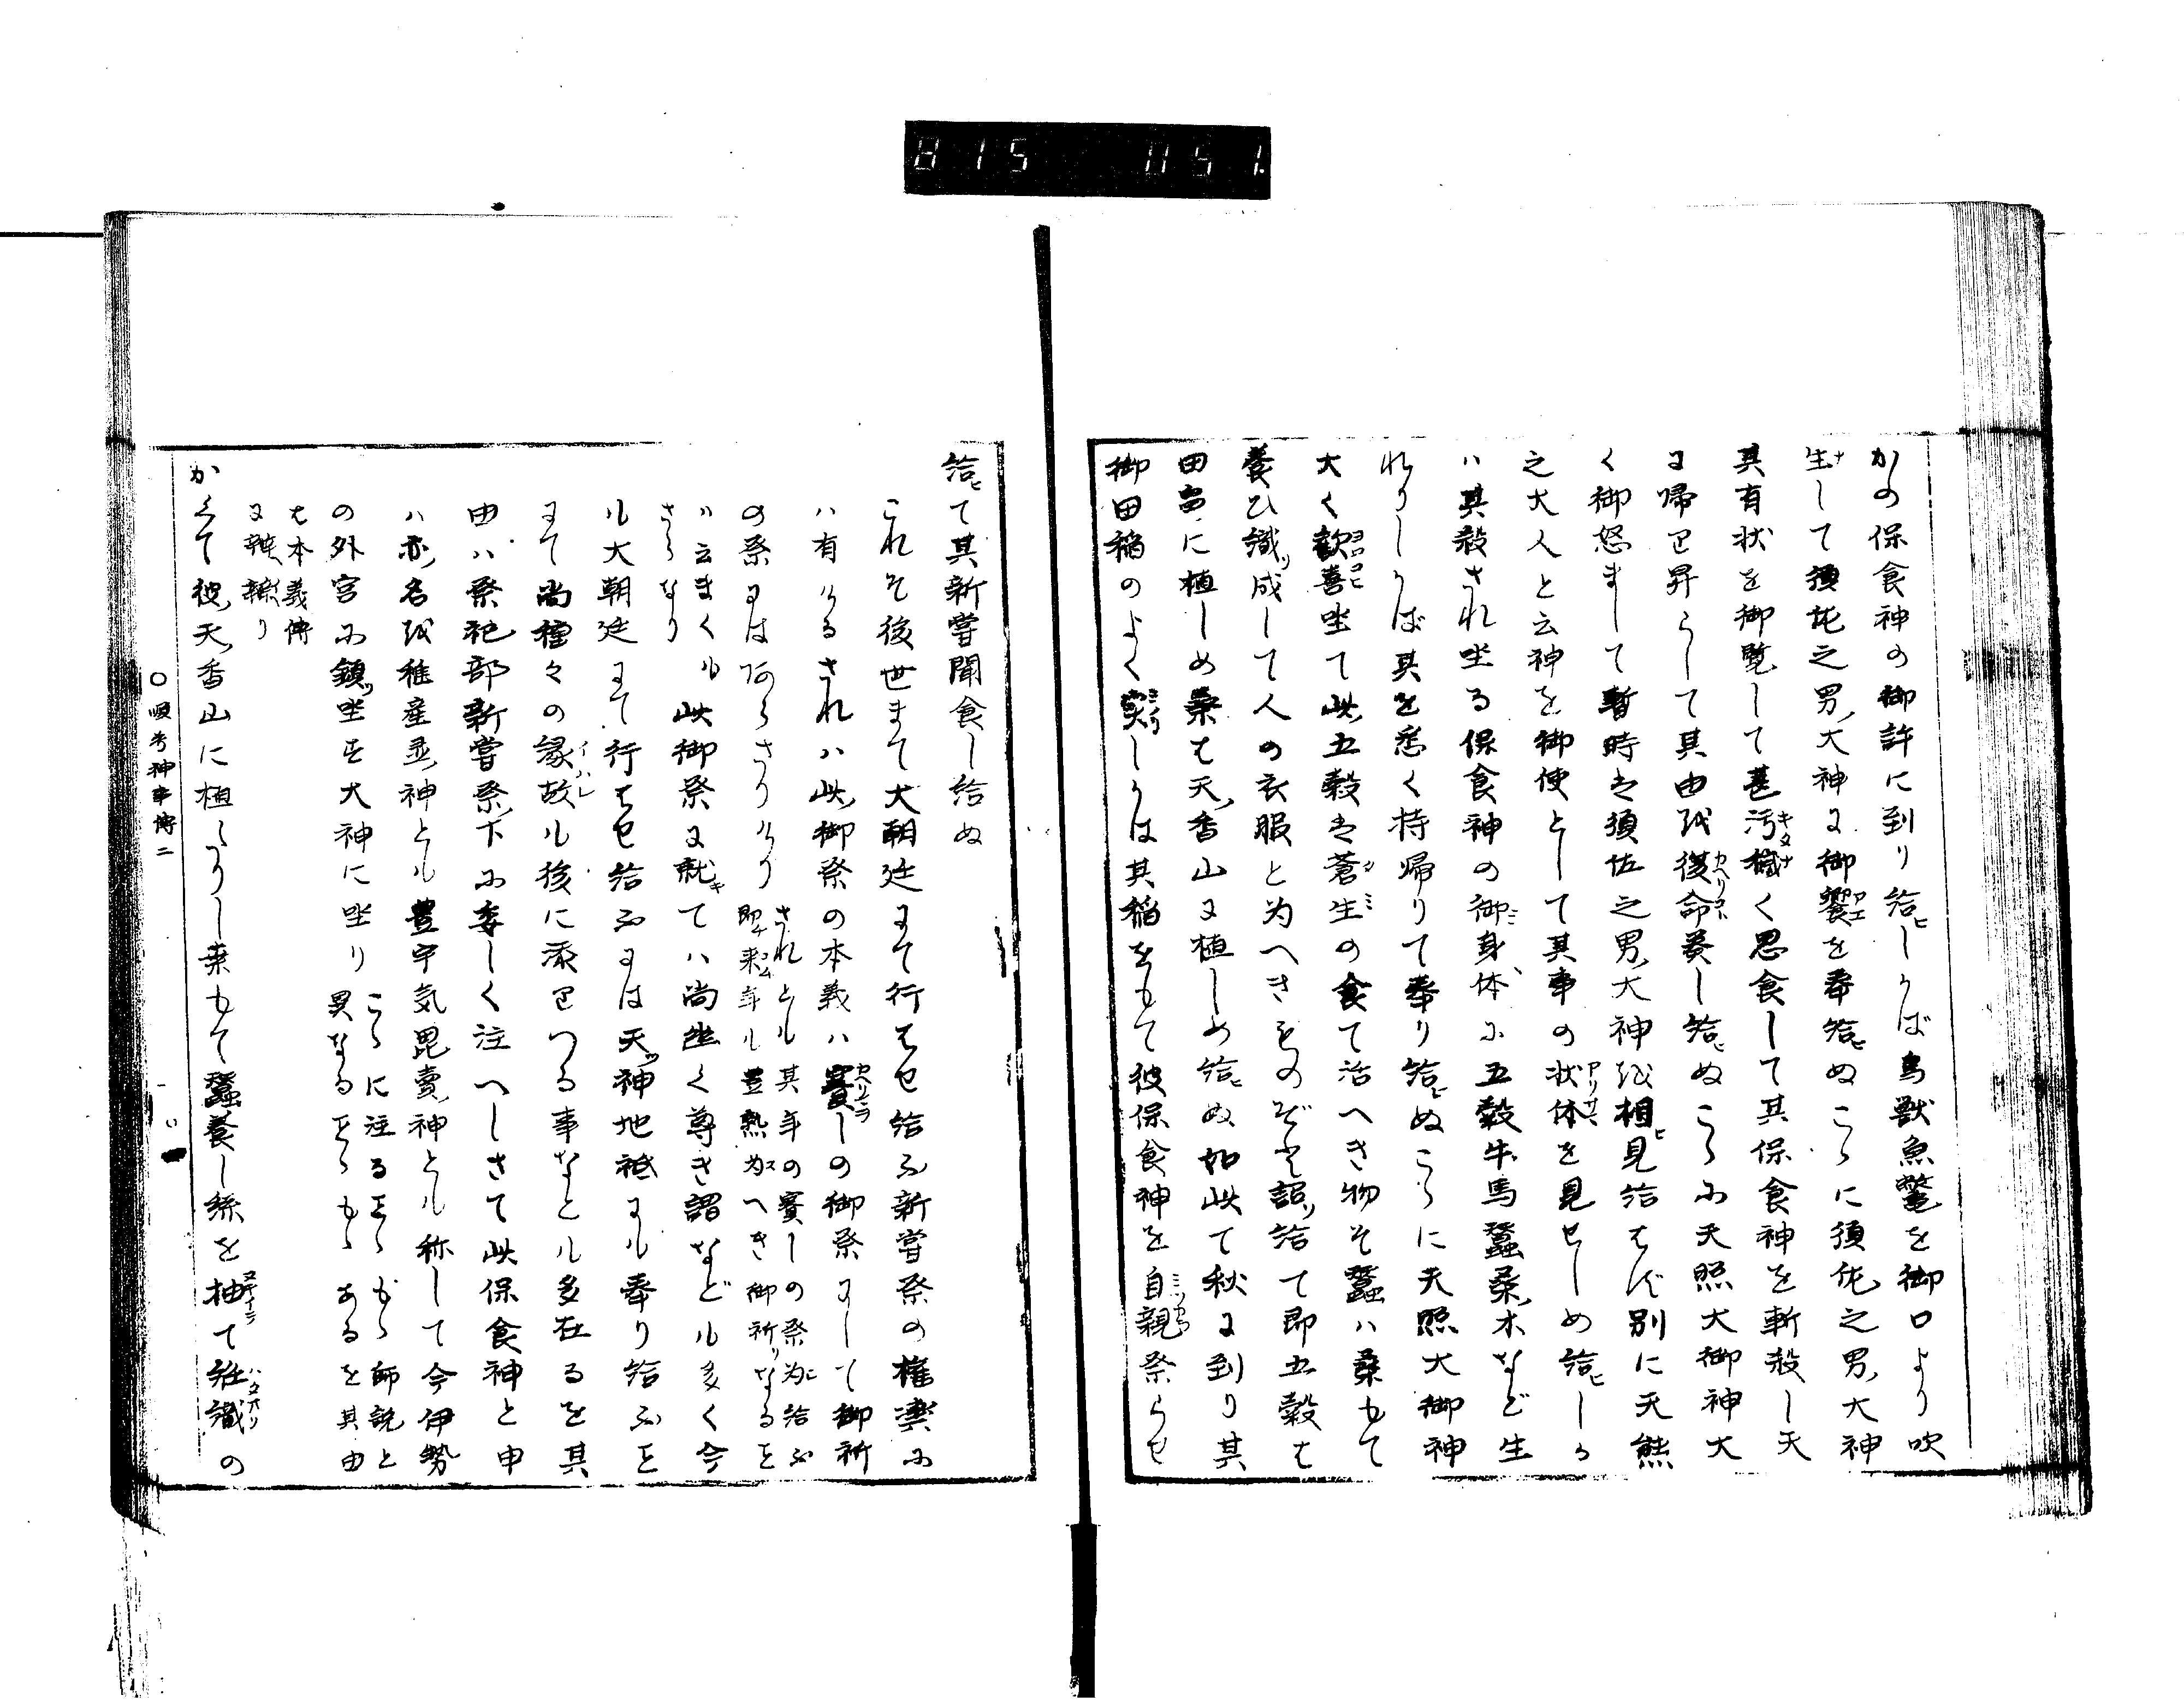 815 1151.
かの保食神の御許に到り給ヒしかば鳥獣魚鼈を御口より吹
生ナして須佐之男ノ大神に御饗アエを奉給ヒぬこゝに須佐之男ノ大神
其有状を御覧して甚汚穢キタナく思食して其保食神を斬殺し天
に帰り昇らして其由を復命カヘリコト奏し給ヒぬこゝに天照大御神大
く御怒まして暫時は須佐之男ノ大神を相ヒ見給はで別に天熊
之大人と云神を御使として其事の状体アリサマを見せしめ給ヒしる
ハ其殺され坐る保食神の御ミ身体に五穀牛馬蚕桑ノ木など生
れりしかば其を悉く持帰りて奉り給ヒぬこゝに天照大御神
大く歓喜ヨロコビ坐て此ノ五穀は蒼生の食て活へき物そ蚕ハ桑もて
養ひ織リ成して人の衣服と為へきものぞと詔リ給て即五穀は
田畠に植しめ桑は天ノ香山に植しめ給ヒぬ如此て秋に到り其
御田稲のよく実ミノりしかは其稲をもて彼保食神を自親ミツカラ祭らせ
給ヒて其新嘗聞食し給ぬ
これそ後世まて大朝廷にて行はせ給ふ新嘗祭の権輿に
ハ有けるされハ此ノ御祭の本義ハ賽しの御祭にして御祈
の祭にはあらさりけりされとも其年の賽しの祭為ニ給ふ
即チ来ム年も豊熟為スへき御祈りなるを
ハ云まくも此御祭に就キてハ尚甚く尊き謂なども多く今
さらなり
も大朝廷にて行はせ給ふには天ツ神地祇にも奉り給ふを
にて尚種々の縁故イハレも後に添りつる事なとも多在るを其
由ハ祭祀部新嘗祭ノ下に委しく注へしさて此保食神と申
ハ亦ノ名を稚産霊ノ神とも豊宇気毘売ノ神とも称して今伊勢
の外宮に鎮ツ坐す大神に坐りこゝに注るをゝもゝ師説と
異なるをゝもゝあるを其由
は本義伝
に弁辨り
かくて彼ノ天ノ香山に植らりし桒もて蚕養し糸を抽て経織ハタオリの
〇順考神事伝二